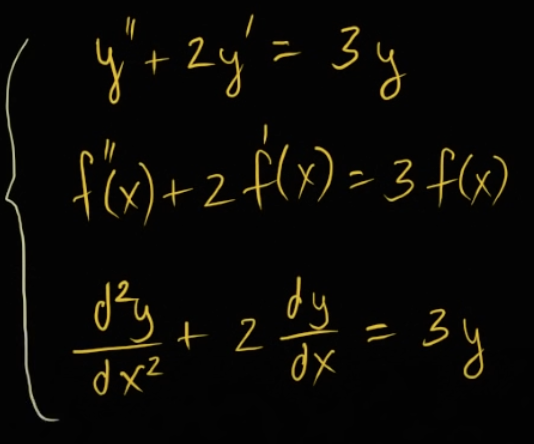 y'' + 2y' = 3y
f''(x) + 2f'(x) = 3f(x)
d²y/dx² + 2 dy/dx = 3y